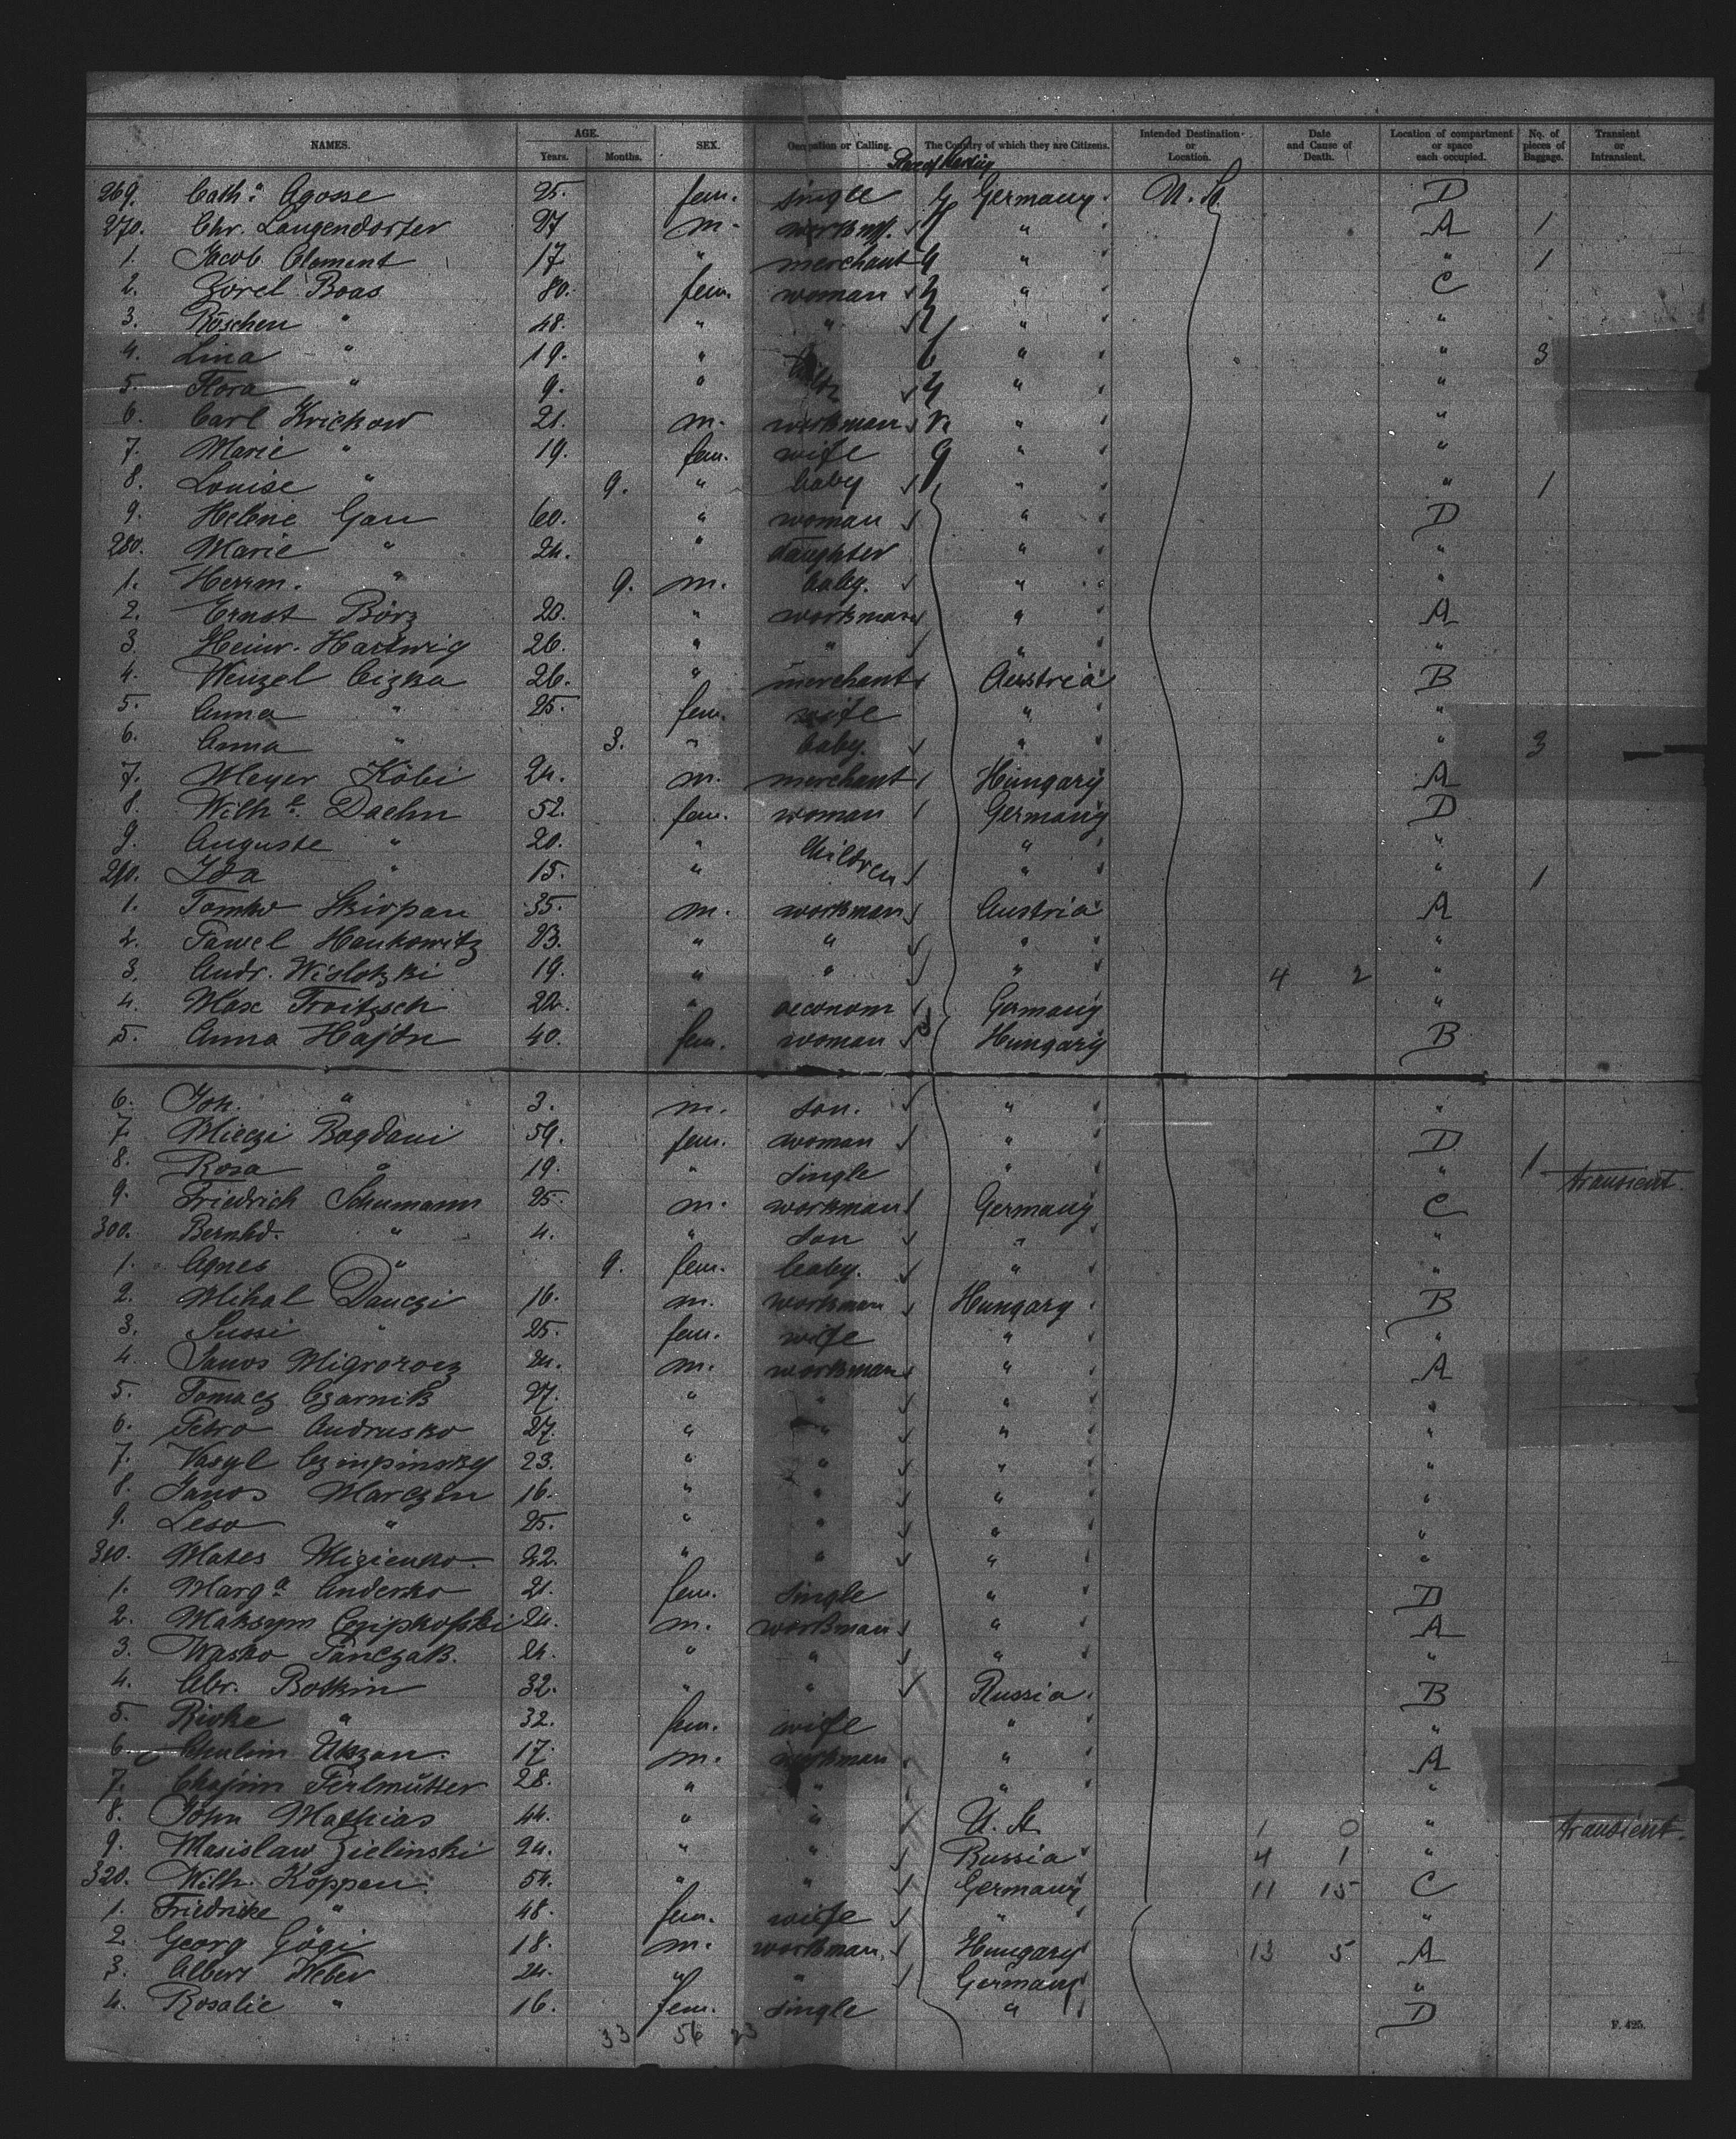 NAMES. AGE. Years. Months. SEX. Occupation or Calling. The Country of which they are Citizens. Intended Destination or Location. Date and Cause of Death. Location of compartment or space each occupied. No. of pieces of Baggage. Transient or Intransient.
269. Cath.a Agosse 25. fem. single Germany. U. St. D
270. Chr. Langendorfer 27 m. " A 1
1. Jacob Clement 17. " merchant " " 1
2. Zorel Boas 80. fem. woman " C
3. Röschen " 48. " " " "
4. Lina " 19. " " " 3
5. Flora " 9. " " "
6. Carl Krickow 21. m. workman " "
7. Marie " 19. fem. wife " "
8. Louise " 9. " baby " " 1
9. Helene Gau 60. " woman " D
280. Marie " 24. " daughter " "
1. Herrm. " 9. m. baby. " "
2. Ernst Börz 20. " workman " A
3. Heinr. Hartwig 26. " " " "
4. Wenzel Cizka 26. " merchant Austria B
5. Anna " 25. fem. wife " "
6. Anna " 3. " baby. " " 3
7. Meyer Köbi 24. m. merchant Hungary A
8. Wilh.e Daehn 52. fem. woman Germany D
9. Auguste " 20. " Children " "
290. Ida " 15. " " " 1
1. Tomko Skiopan 35. m. workman Austria A
2. Pawel Hankowitz 23. " " " "
3. Andr. Wislotzki 19. " " " 4 2 "
4. Max Troitzsch 22. " oeconom Germany "
5. Anna Hajdn 40. fem. woman Hungary B
6. Joh. " 3. m. son. " "
7. Mieczi Bogdani 59. fem. woman " D
8. Rosa " 19. " single " " 1 transient.
9. Friedrich Schumann 25. m. workman Germany C
300. Bernhd. " 4. " son " "
1. Agnes " 9. fem. baby. " "
2. Mihal Danczi 16. m. workman Hungary B
3. Sussi " 25. fem. wife " "
4. Janos 24. m. workman " A
5. Tomacz Czarnik 27. " " " "
6. Petro Andrusko 27. " " " "
7. Vasyl Czinpinsky 23. " " " "
8. Janos Marczin 16. " " " "
9. Leso " 25. " " " "
310. Mates Migienko. 22. " " " "
1. Marg.a Anderko 21. fem. single " D
2. Maksym 24. m. workman " A
3. Wasko Panczak. 24. " " " "
4. Abr. Botkin 32. " " Russia. B
5. Rivke " 32. fem. wife " "
6. Chulim Uszan. 17. m. workman " A
7. Chajim Perlmütter 28. " " " "
8. John Mathias 44. " " U. St. 1 0 " transient.
9. Masislaw Zielinski 24. " " Russia 4 1 "
320. Wilh. Köppen. 54. " " Germany 11 15 C
1. Friedrike " 48. fem. wife " "
2. Georg Gögi 18. m. workman. Hungary 13 5 A
3. Albert Weber 24. " " Germany "
4. Rosalie " 16. fem. single " D
33 56 23
F. 425.